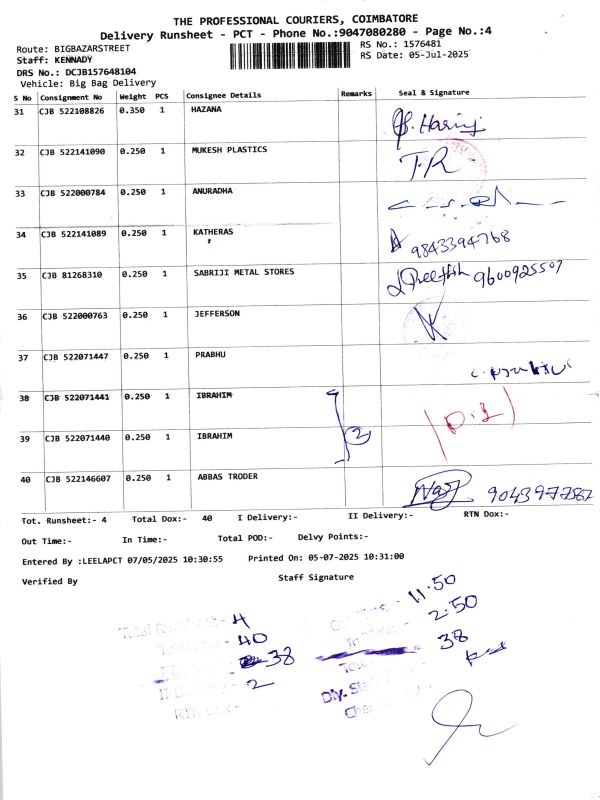 THE PROFESSIONAL COURIERS, COIMBATORE
Delivery Runsheet - PCT - Phone No.:9047080280 - Page No.:4
Route: BIGBAZARSTREET RS No.: 1576481
Staff: KENNADY RS Date: 05-Jul-2025
DRS No.: DCJB157648104
Vehicle: Big Bag Delivery
S No Consignment No Weight PCS Consignee Details Remarks Seal & Signature
31 CJB 522108826 0.350 1 HAZANA
32 CJB 522141090 0.250 1 MUKESH PLASTICS T.R
33 CJB 522000784 0.250 1 ANURADHA
34 CJB 522141089 0.250 1 KATHERAS 9843394768
35 CJB 81268310 0.250 1 SABRIJI METAL STORES Preethh 9600925507
36 CJB 522000763 0.250 1 JEFFERSON
37 CJB 522071447 0.250 1 PRABHU
38 CJB 522071441 0.250 1 IBRAHIM
39 CJB 522071440 0.250 1 IBRAHIM 2 D.L
40 CJB 522146607 0.250 1 ABBAS TRODER
Tot. Runsheet:- 4 Total Dox:- 40 I Delivery:- II Delivery:- RTN Dox:-
Out Time:- In Time:- Total POD:- Delvy Points:-
Entered By :LEELAPCT 07/05/2025 10:30:55 Printed On: 05-07-2025 10:31:00
Verified By Staff Signature
4 11.50
40 2.50
38 38
2
RTN Dox -